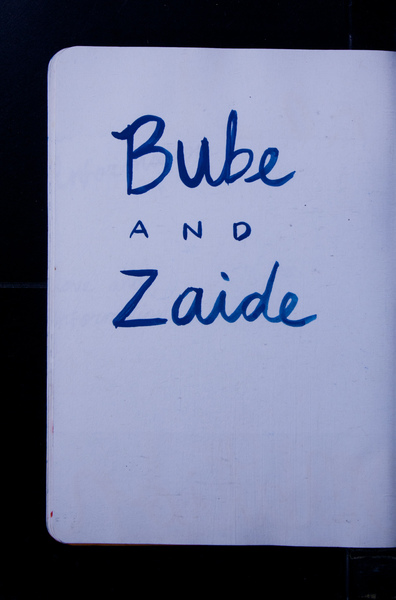 Bube
AND
Zaide